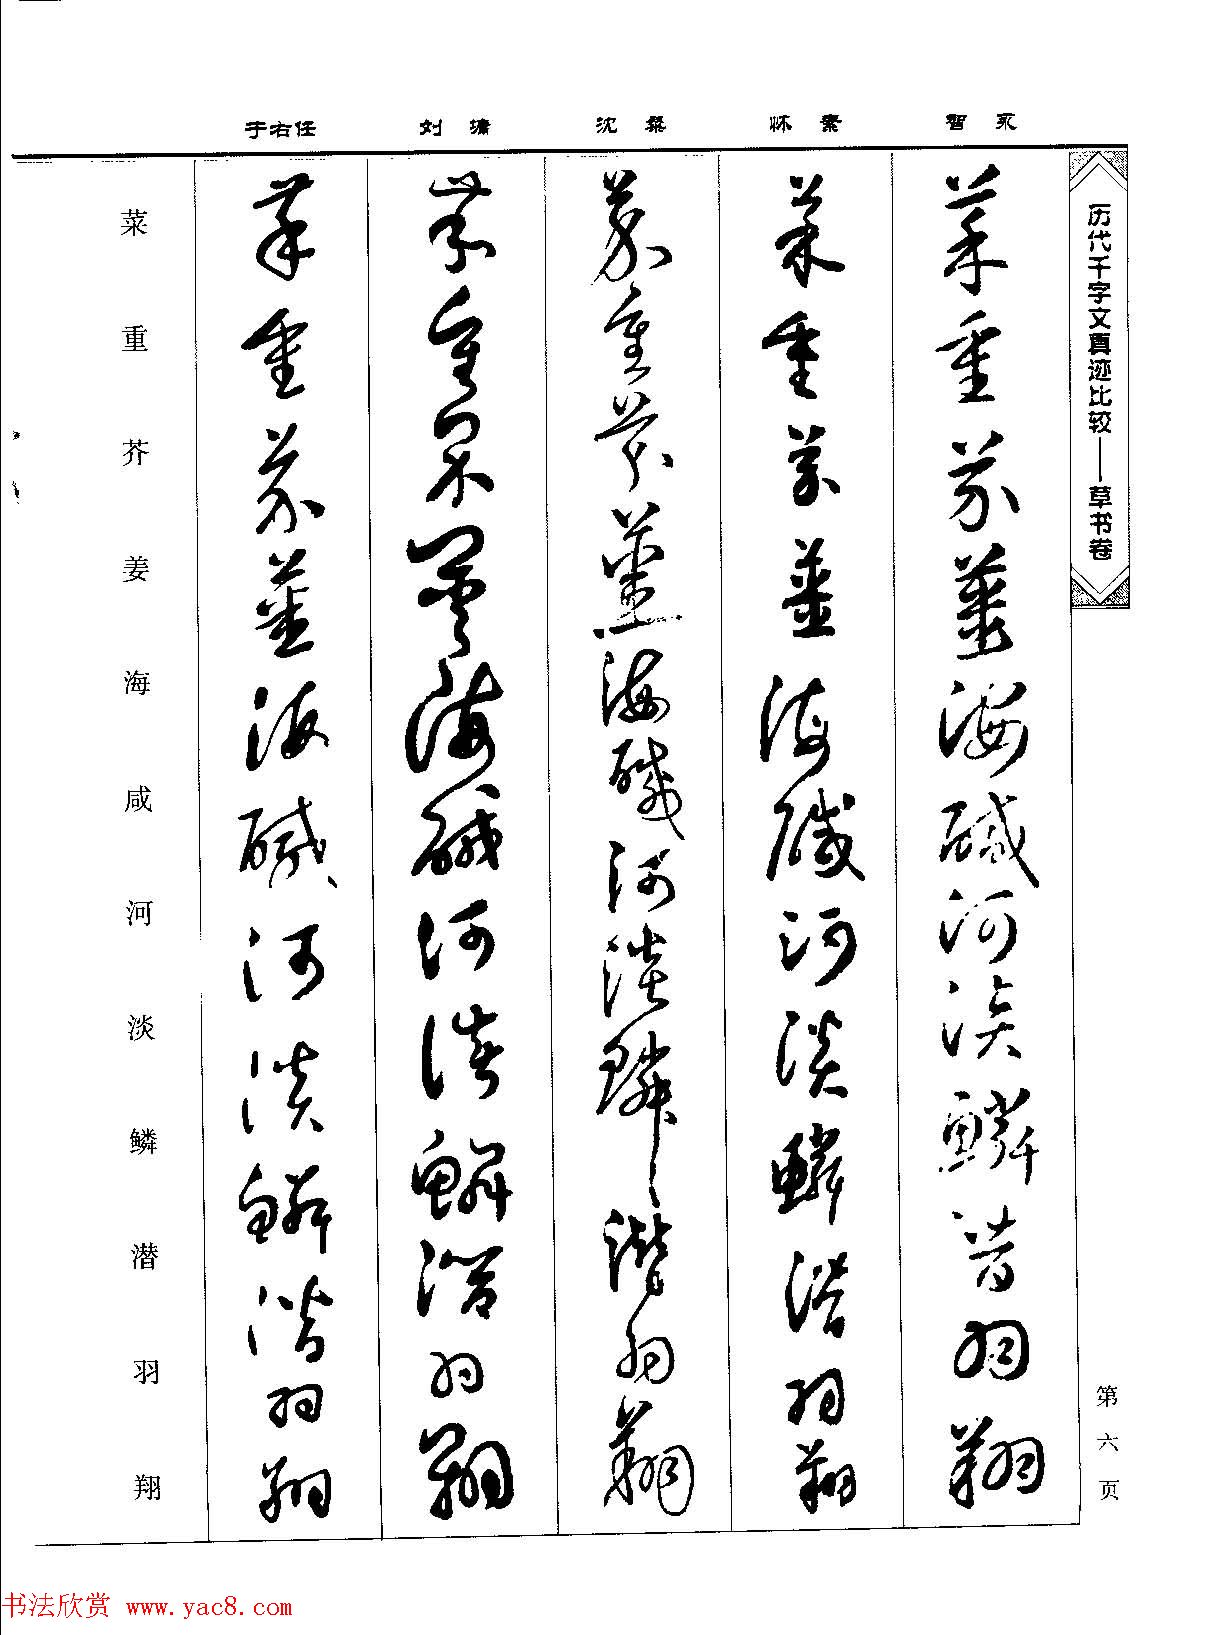 智永
怀素
沈粲
刘墉
于右任
历代千字文真迹比较——草书卷
第六页
菜重芥姜海咸河淡鳞潜羽翔
菜重芥姜海咸河淡鳞潜羽翔
菜重芥姜海咸河淡鳞潜羽翔
菜重芥姜海咸河淡鳞潜羽翔
菜重芥姜海咸河淡鳞潜羽翔
菜重芥姜海咸河淡鳞潜羽翔
书法欣赏 www.yac8.com